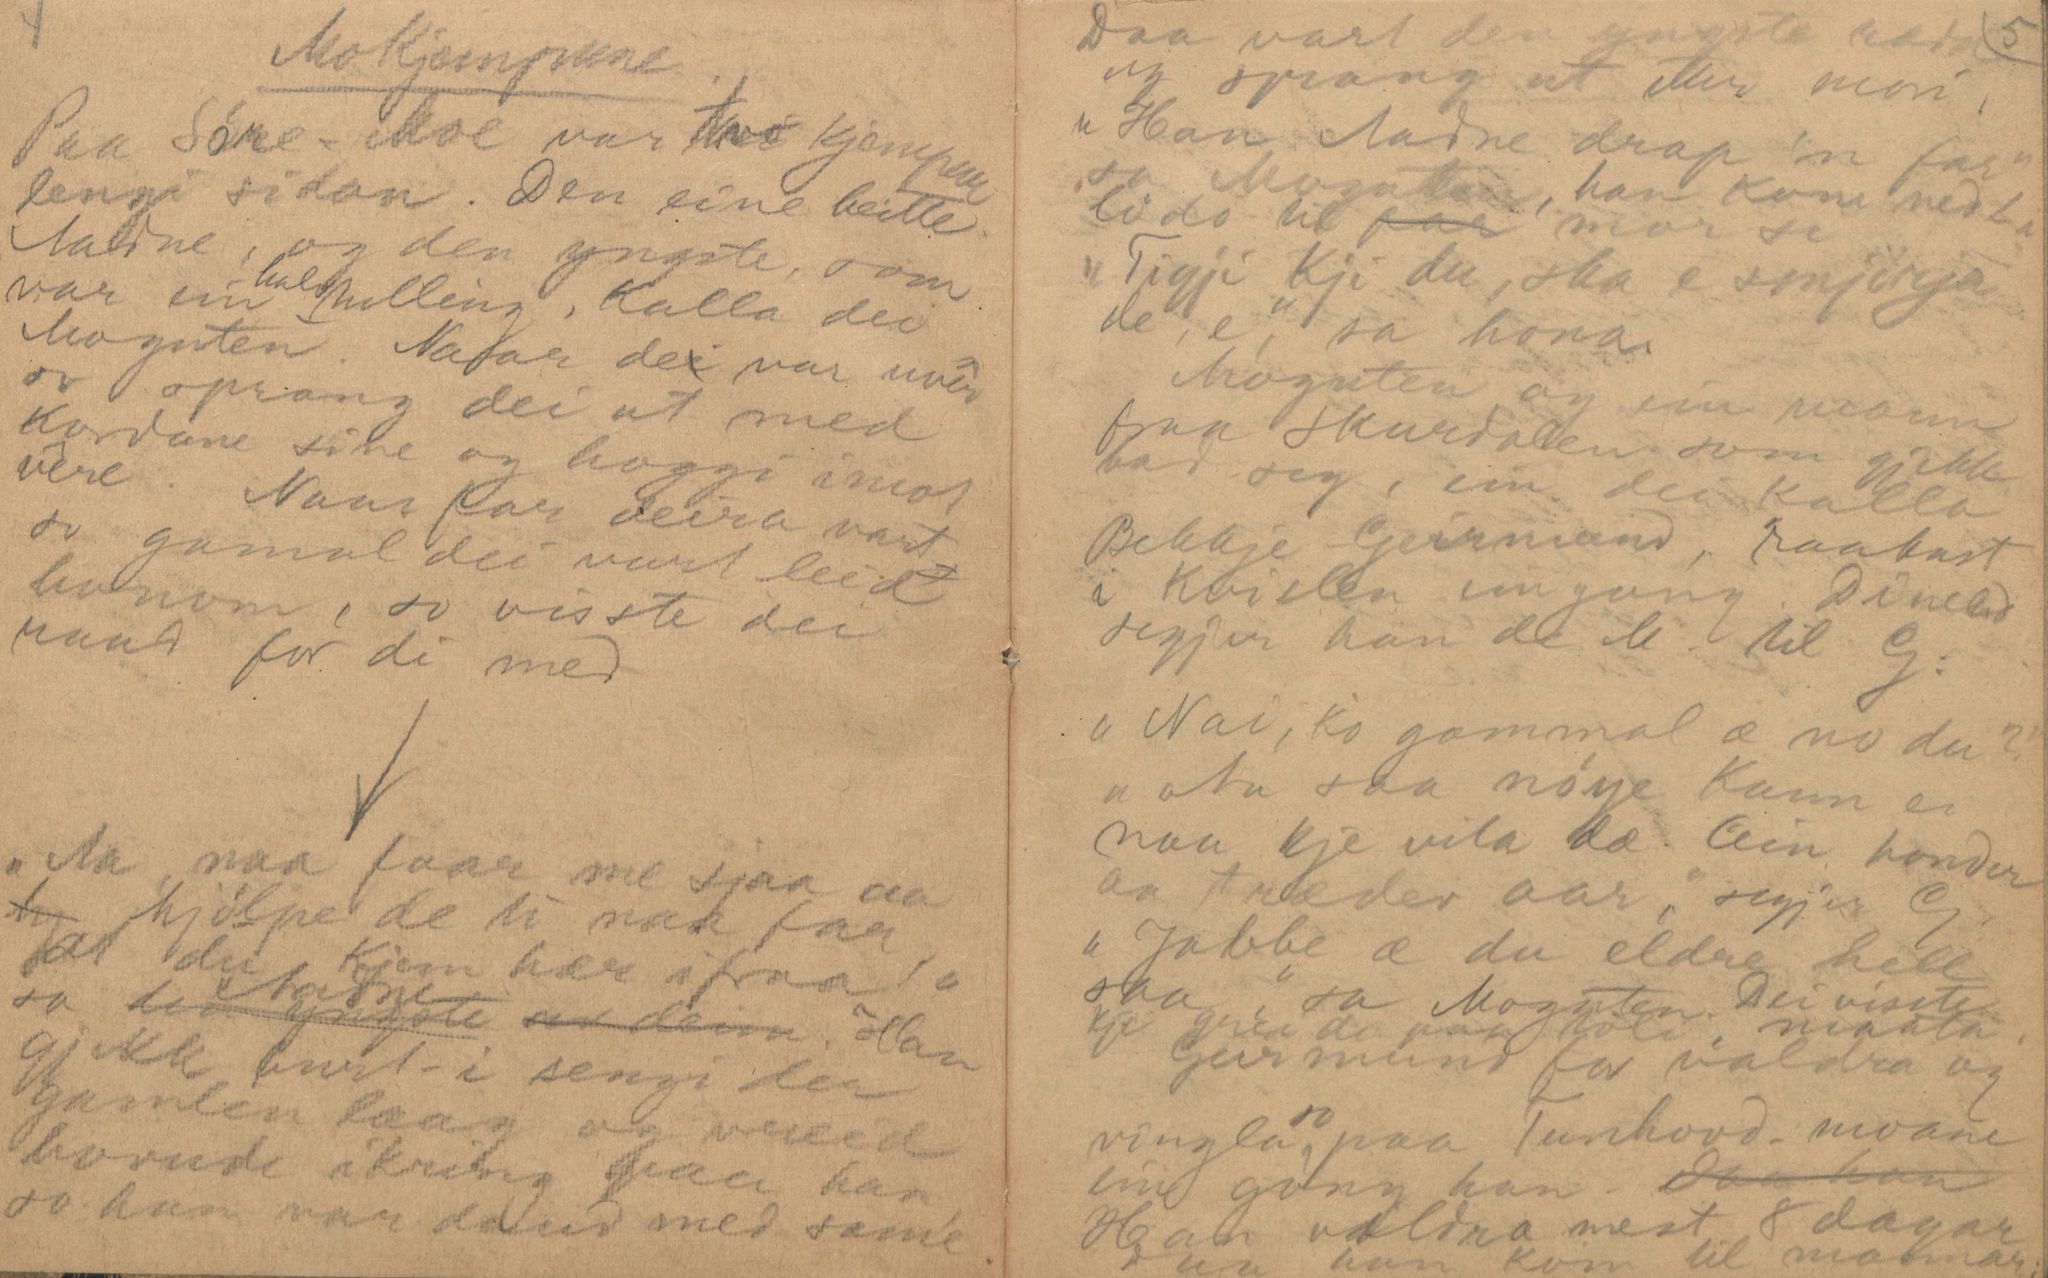 Mokjempune.
Paa Söre-Moe var tvo kjempur
lengi sidan. Den eine heitte
Aadne, og den yngste, som
var ein halvvilling, kalla dei
Moguten. Naar dei var uvêr
so sprang dei ut med
kordane sine og hoggi imot
vêre. Naar far deira vart
so gamal dei vart leid
honom, so visste dei
raad for di med
"Aa naa faar me sjaa aa
hjölpe de ti naa far,
at du kjem hær ifraa!"
sa Aadne den yngste av deim. Han
gjekk burt-i sengi der
gamlen laag og vreid
hovude ikring paa han
so han var daud med same.
5
Daa vart den yngste rædd
og sprang ut etter mori,
"Han Aadne drap 'n far"
sa Moguten, han kom ned
til far mor si
"Tigji kji du, ska e smjörja
de, e," sa hona.
Moguten og ein mann
fraa Skurdalen som gjekk
bad seg, ein dei kalla
Bekkje-Geirmund, raabast
i Kvislen ein gong.
segjer han de M. til G:
"Nai, ko gammal æ no du?"
saa nöye kann e
naa kje vita dæ. Ein honder
aa træder aar," segjer G.
"Jabbe æ du eldre hell
saa," sa Moguten. Dei visste
kji greide paa toli, maata.
Geirmund for valdra og
vingla so paa Tunhovd-moane
ein gong han. Daa han
Han valdra mest 8 dagar
Daa han kom til mannar